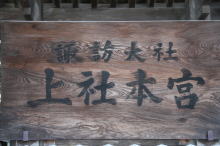 諏訪大社
上社本宮